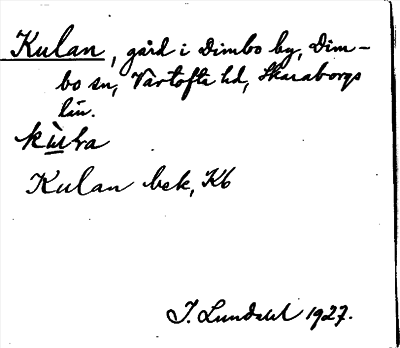 Kulan, gård i Dimbo by, Dim-
bo sn, Vartofta hd, Skaraborgs
län.
Kulan bek, Kb
J. Lundahl 1927.